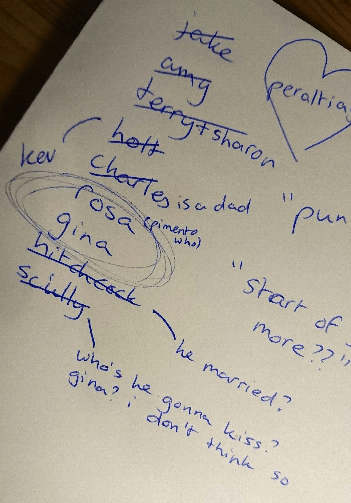 jake
amy
peraltiag
terry + sharon
holt
kev
charles is a dad
"pun
rosa
(pimento who)
gina
hitchcock
"start of
more??"
scully
he married?
who's he gonna kiss?
gina? i don't think so